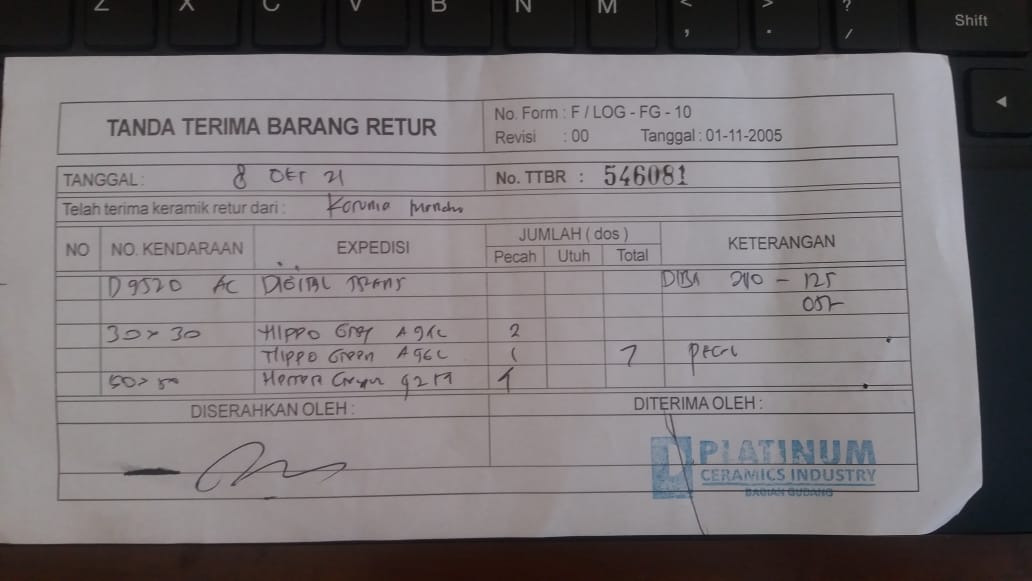 Z X C V B N M < > ?
, . / Shift
TANDA TERIMA BARANG RETUR
No. Form : F / LOG - FG - 10
Revisi : 00 Tanggal : 01-11-2005
TANGGAL : 8 OKT 21
No. TTBR : 546081
Telah terima keramik retur dari :
NO NO. KENDARAAN EXPEDISI JUMLAH ( dos ) KETERANGAN
Pecah Utuh Total
D 9520 AC DIGITAL TRANS 210 - 125
30 x 30 HIPPO Grey A 2
HIPPO Green A 1 7
50 x 50
DISERAHKAN OLEH :
DITERIMA OLEH :
PLATINUM
CERAMICS INDUSTRY
BAGIAN GUDANG